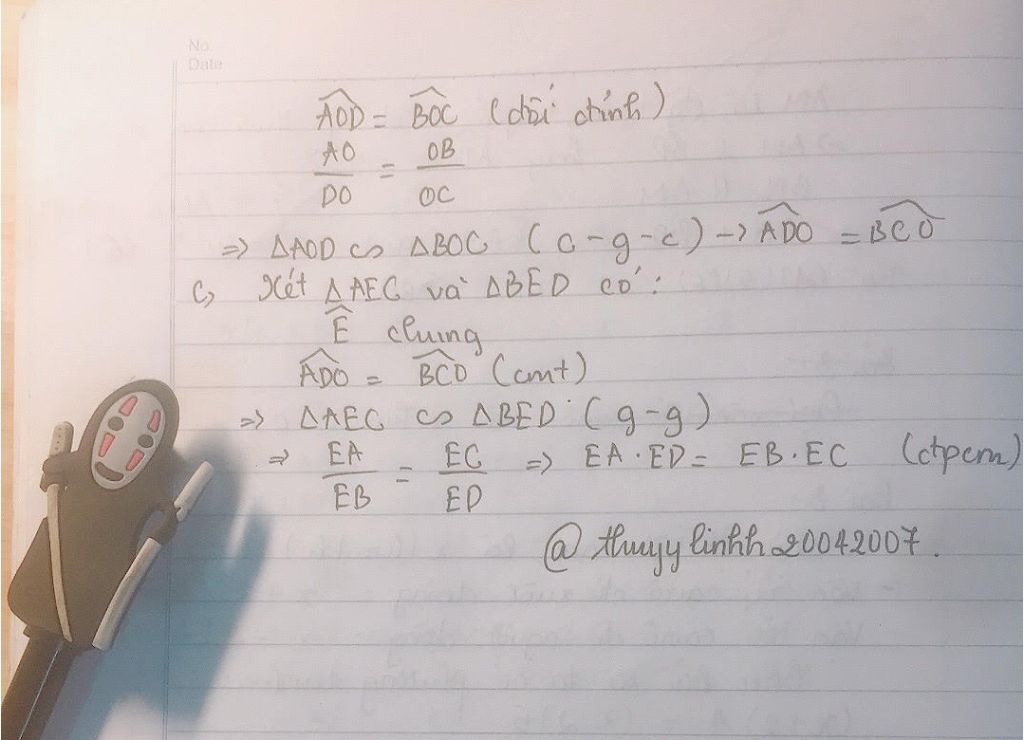 No.
Date
$\widehat{AOD} = \widehat{BOC}$ (đối đỉnh)
$\frac{AO}{DO} = \frac{OB}{OC}$
⇒ ΔAOD ∽ ΔBOC (c-g-c) → $\widehat{ADO} = \widehat{BCO}$
c, Xét ΔAEC và ΔBED có:
$\widehat{E}$ chung
$\widehat{ADO} = \widehat{BCO}$ (cmt)
⇒ ΔAEC ∽ ΔBED (g-g)
⇒ $\frac{EA}{EB} = \frac{EC}{ED}$ ⇒ EA.ED = EB.EC (đtpcm)
@thuyylinhh20042007.